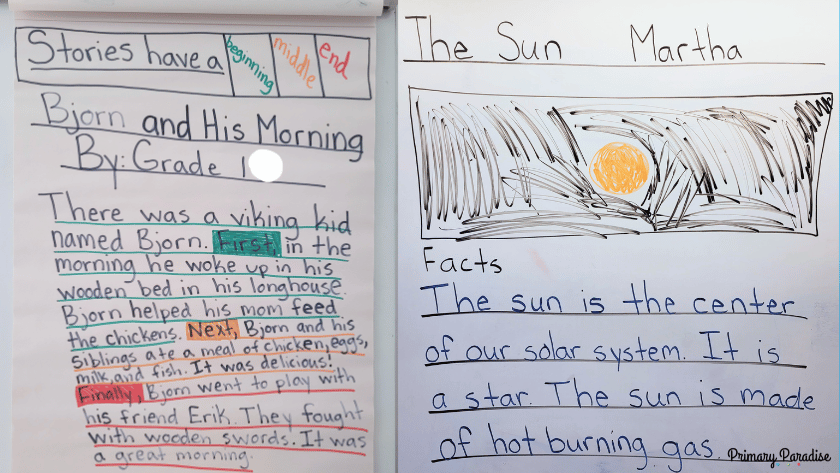 Stories have a beginning middle end
Bjorn and His Morning
By: Grade 1
There was a viking kid
named Bjorn. First, in the
morning he woke up in his
wooden bed in his longhouse.
Bjorn helped his mom feed
the chickens. Next, Bjorn and his
siblings ate a meal of chicken, eggs,
milk, and fish. It was delicious!
Finally, Bjorn went to play with
his friend Erik. They fought
with wooden swords. It was
a great morning.
The Sun Martha
Facts
The sun is the center
of our solar system. It is
a star. The sun is made
of hot burning gas.
Primary Paradise